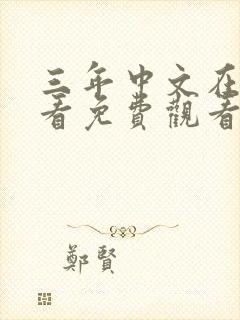 三年中文在
看免費觀看
鄭賢